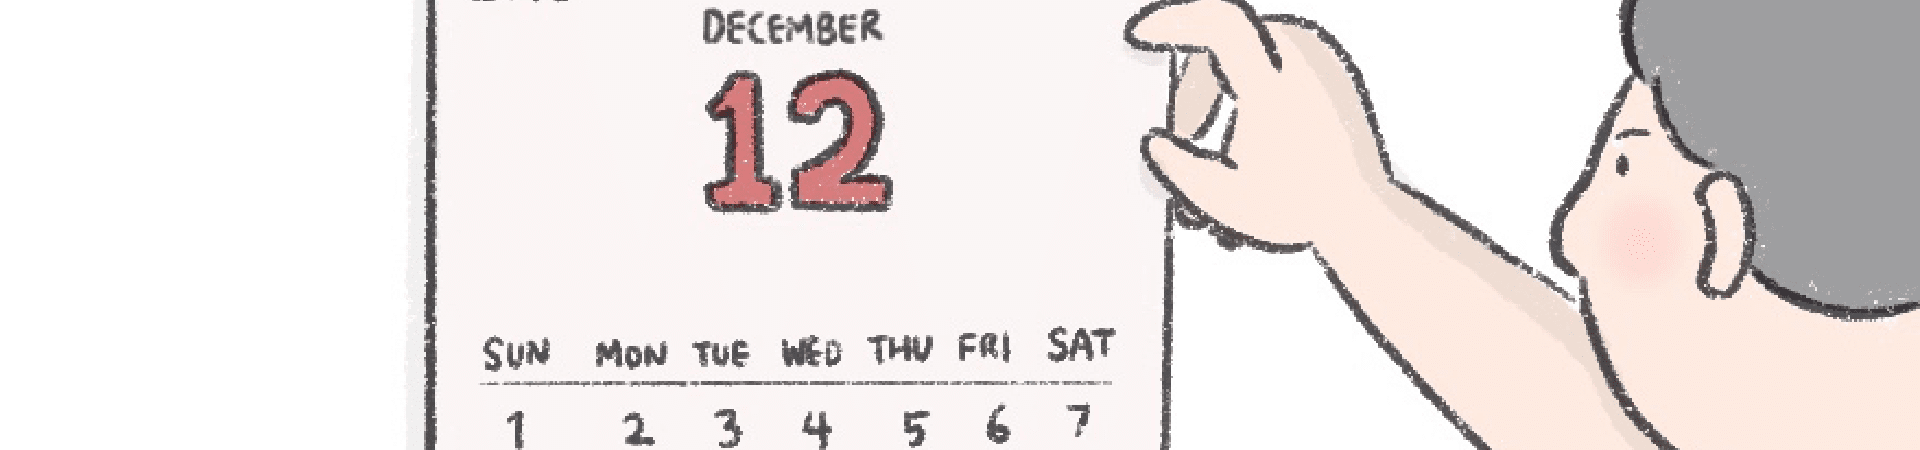 DECEMBER
12
SUN MON TUE WED THU FRI SAT
1 2 3 4 5 6 7